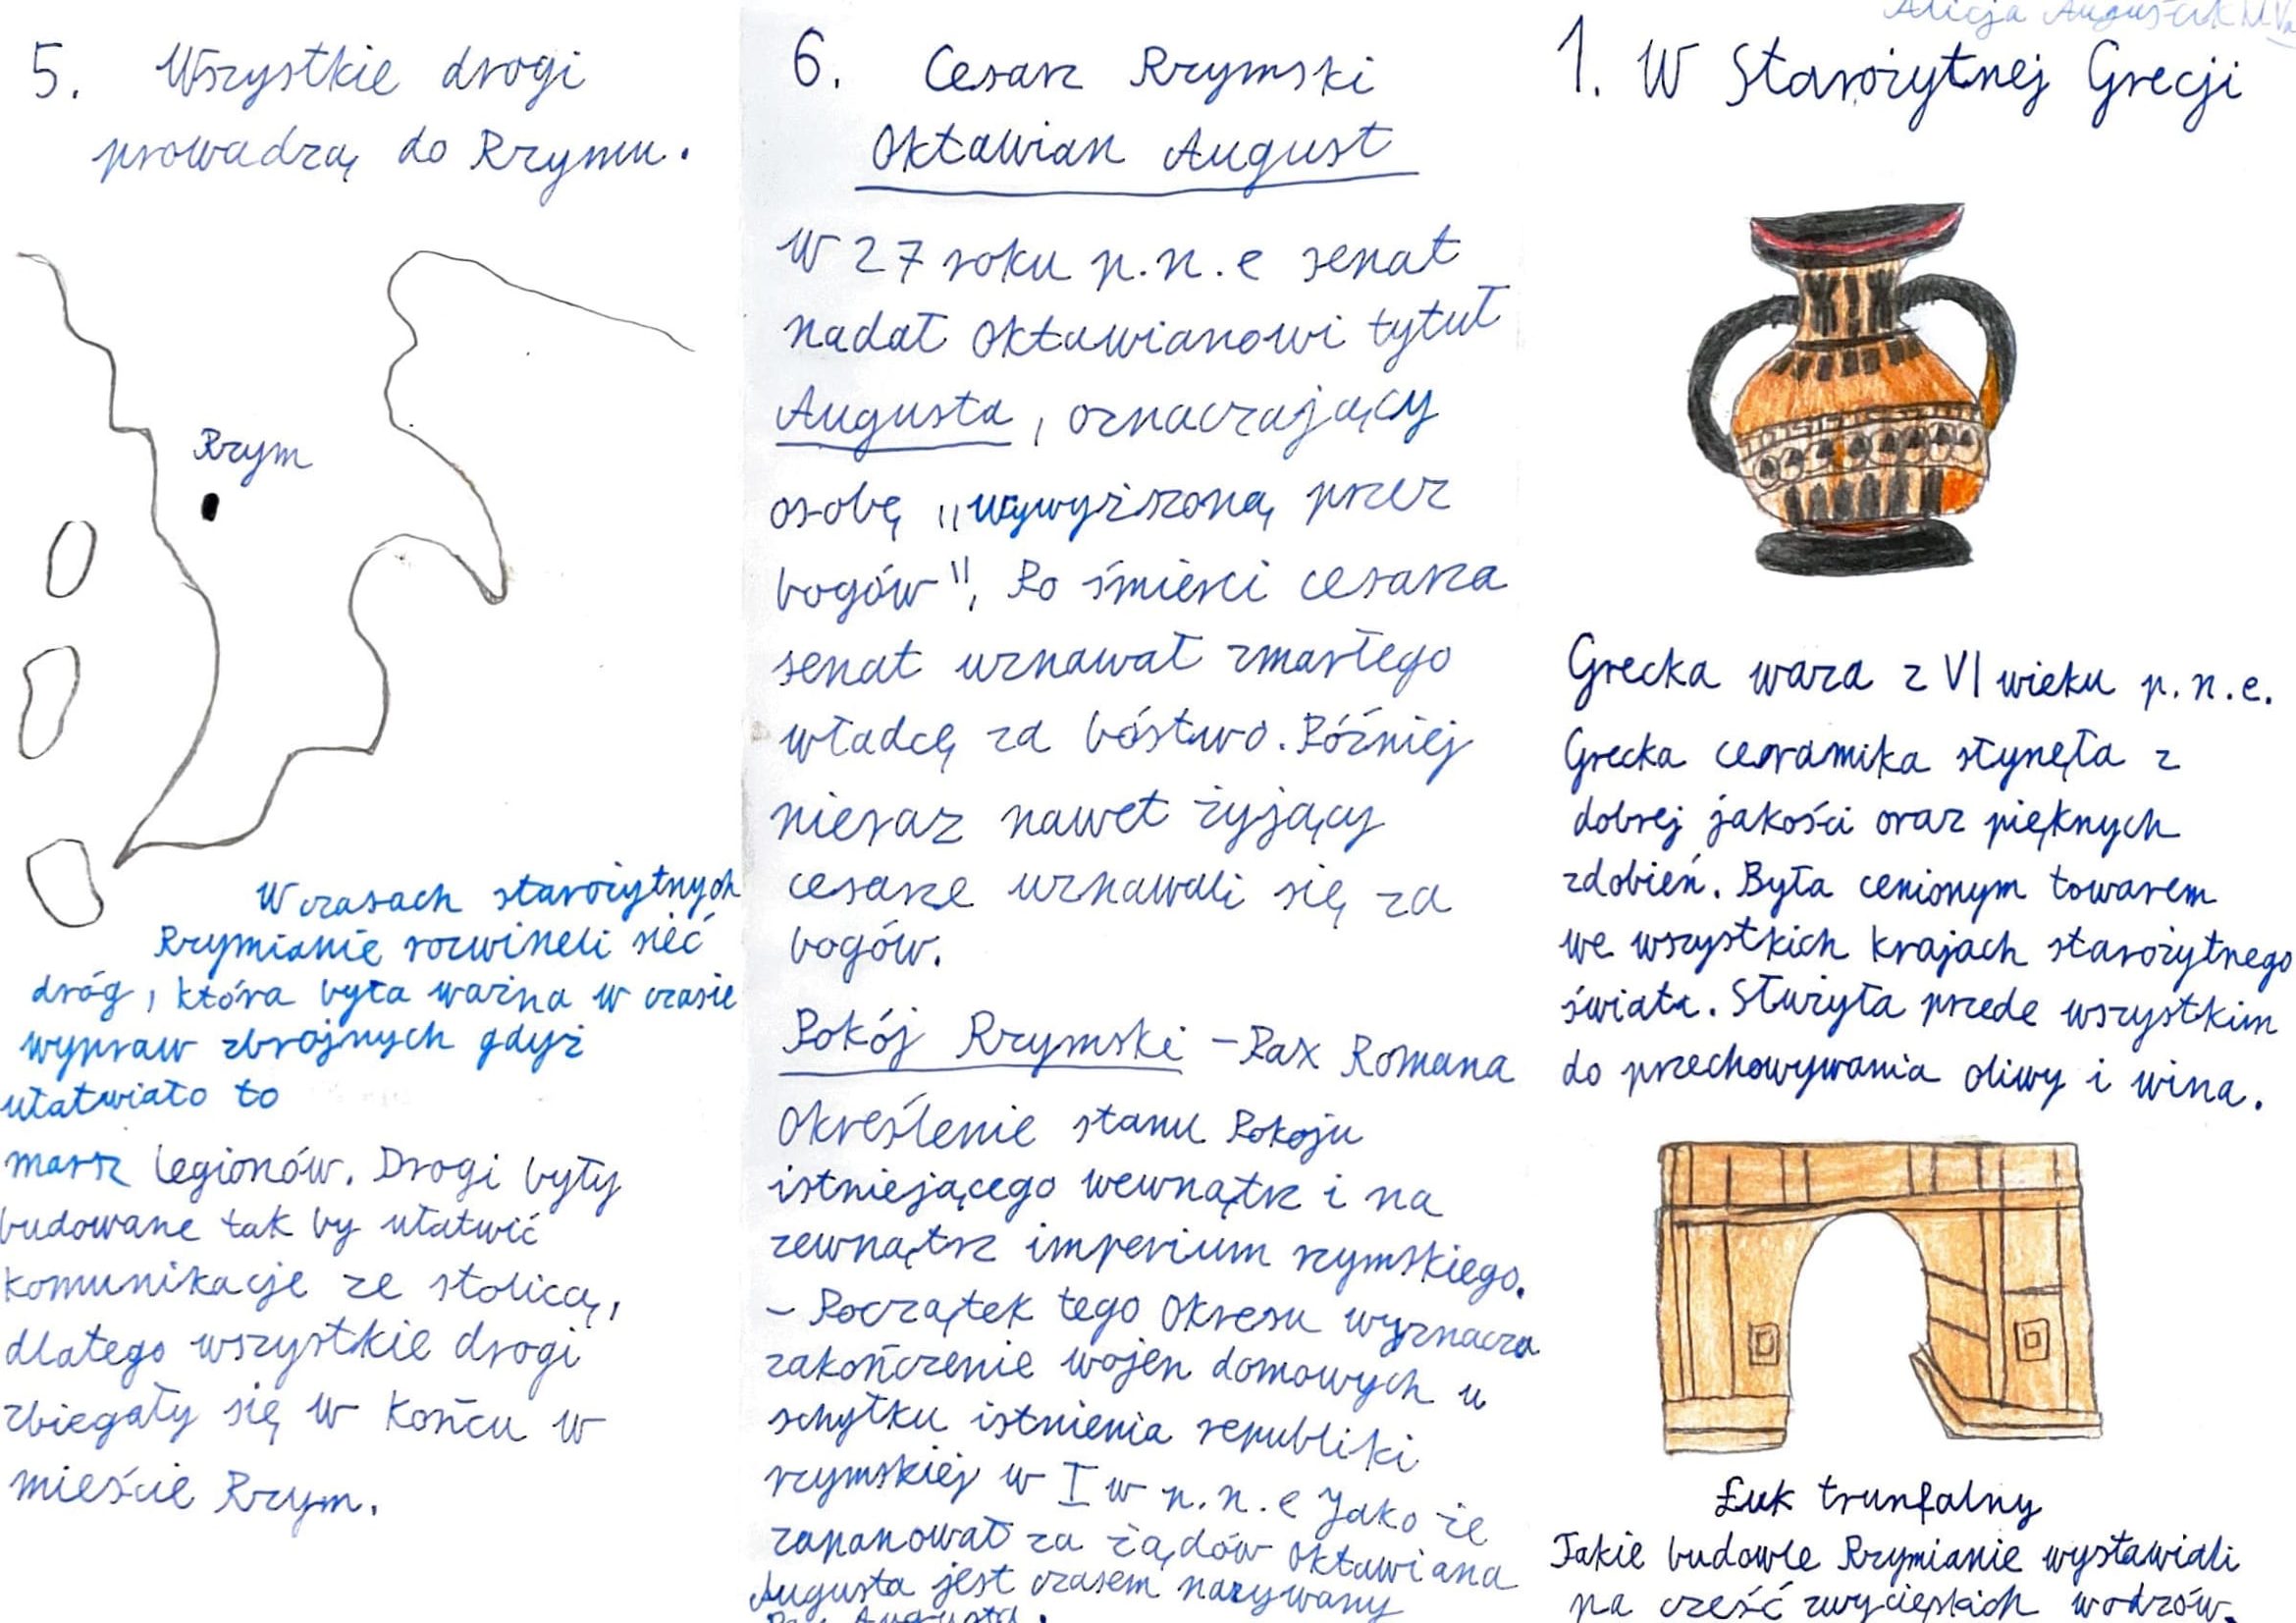 5. Wszystkie drogi
prowadzą do Rzymu.
Rzym
W czasach starożytnych
Rzymianie rozwineli sieć
dróg, która była ważna w czasie
wypraw zbrojnych gdyż
ułatwiało to
marsz legionów. Drogi były
budowane tak by ułatwić
komunikacje ze stolicą,
dlatego wszystkie drogi
zbiegały się w końcu w
mieście Rzym.
6. Cesarz Rzymski
Oktawian August
W 27 roku p.n.e senat
nadał Oktawianowi tytuł
Augusta, oznaczający
osobę „wywyższoną przez
bogów", Po śmierci cesarza
senat uznawał zmarłego
władcę za bóstwo. Później
nieraz nawet żyjący
cesarze uznawali się za
bogów.
Pokój Rzymski - Pax Romana
Określenie stanu Pokoju
istniejącego wewnątrz i na
zewnątrz imperium rzymskiego.
- Początek tego Okresu wyznacza
zakończenie wojen domowych u
schyłku istnienia republiki
rzymskiej w I w p.n.e Jako że
zapanował za żądów Oktawiana
Augusta jest czasem nazywany
Pax Augusta.
Alicja
1. W Starożytnej Grecji
Grecka waza z VI wieku p.n.e.
Grecka ceramika słynęła z
dobrej jakości oraz pięknych
zdobień. Była cenionym towarem
we wszystkich krajach starożytnego
świata. Służyła przede wszystkim
do przechowywania oliwy i wina.
Łuk trunfalny
Takie budowle Rzymianie wystawiali
na cześć zwycięskich wodzów.